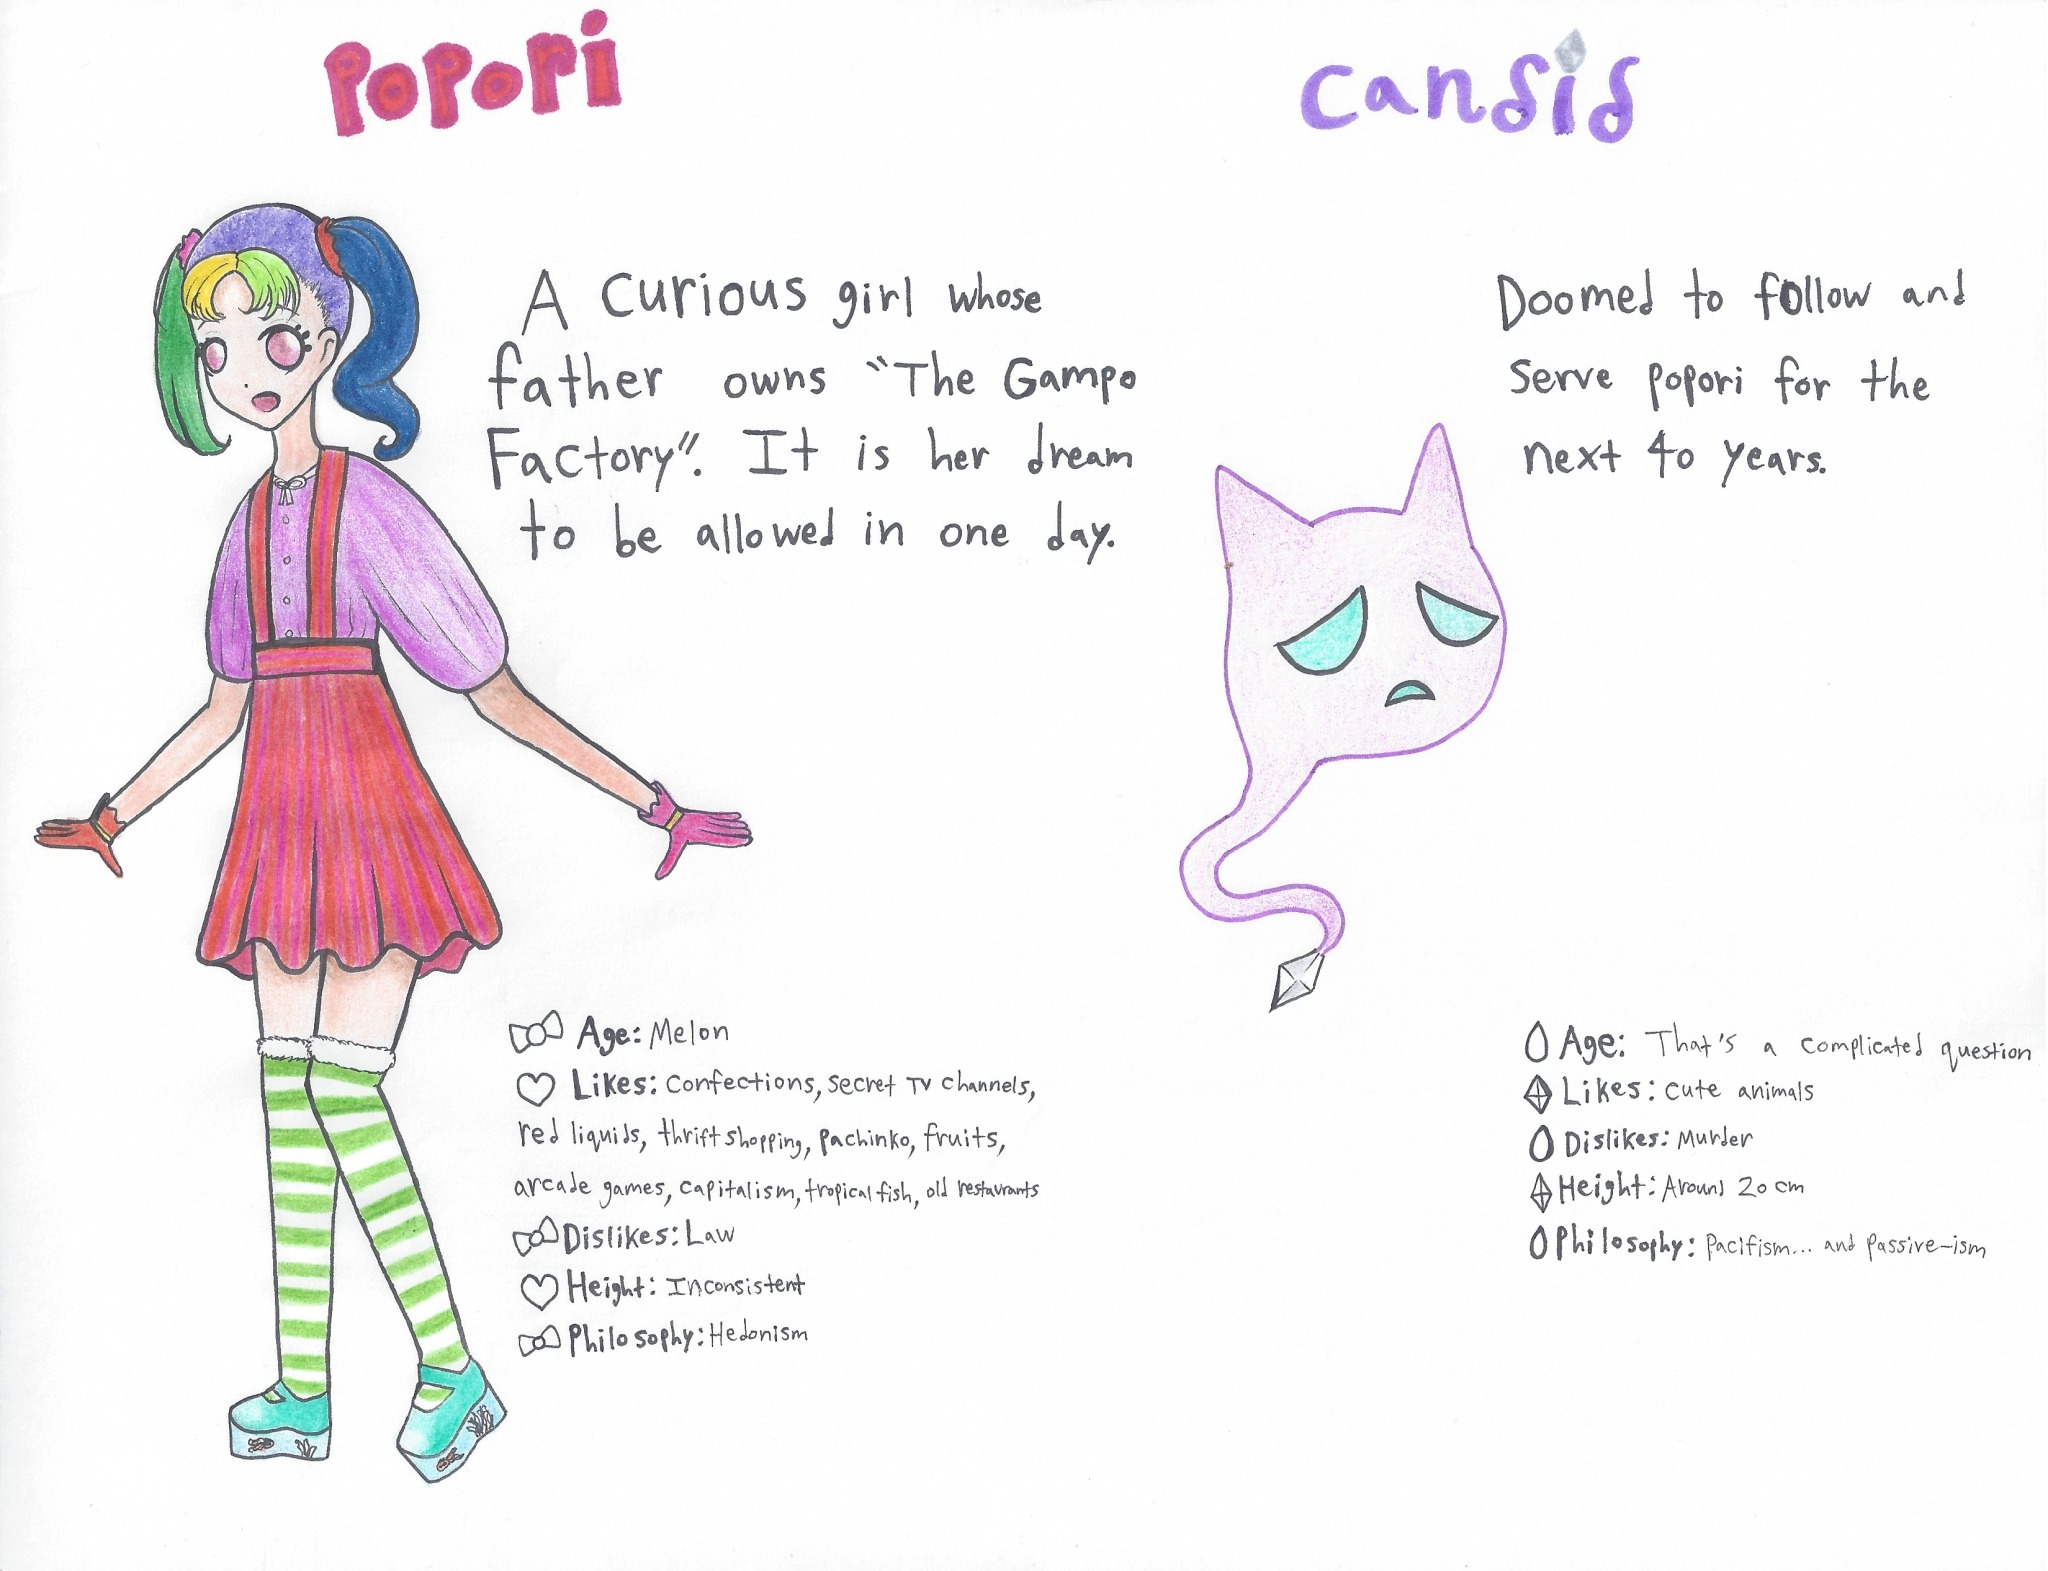 popori
candid
A curious girl whose
father owns "The Gampo
Factory". It is her dream
to be allowed in one day.
Doomed to follow and
serve popori for the
next 40 years.
Age: Melon
Likes: Confections, secret TV channels,
red liquids, thrift shopping, pachinko, fruits,
arcade games, capitalism, tropical fish, old restaurants
Dislikes: Law
Height: Inconsistent
Philosophy: Hedonism
Age: That's a complicated question
Likes: cute animals
Dislikes: Murder
Height: Around 20 cm
Philosophy: Pacifism... and passive-ism